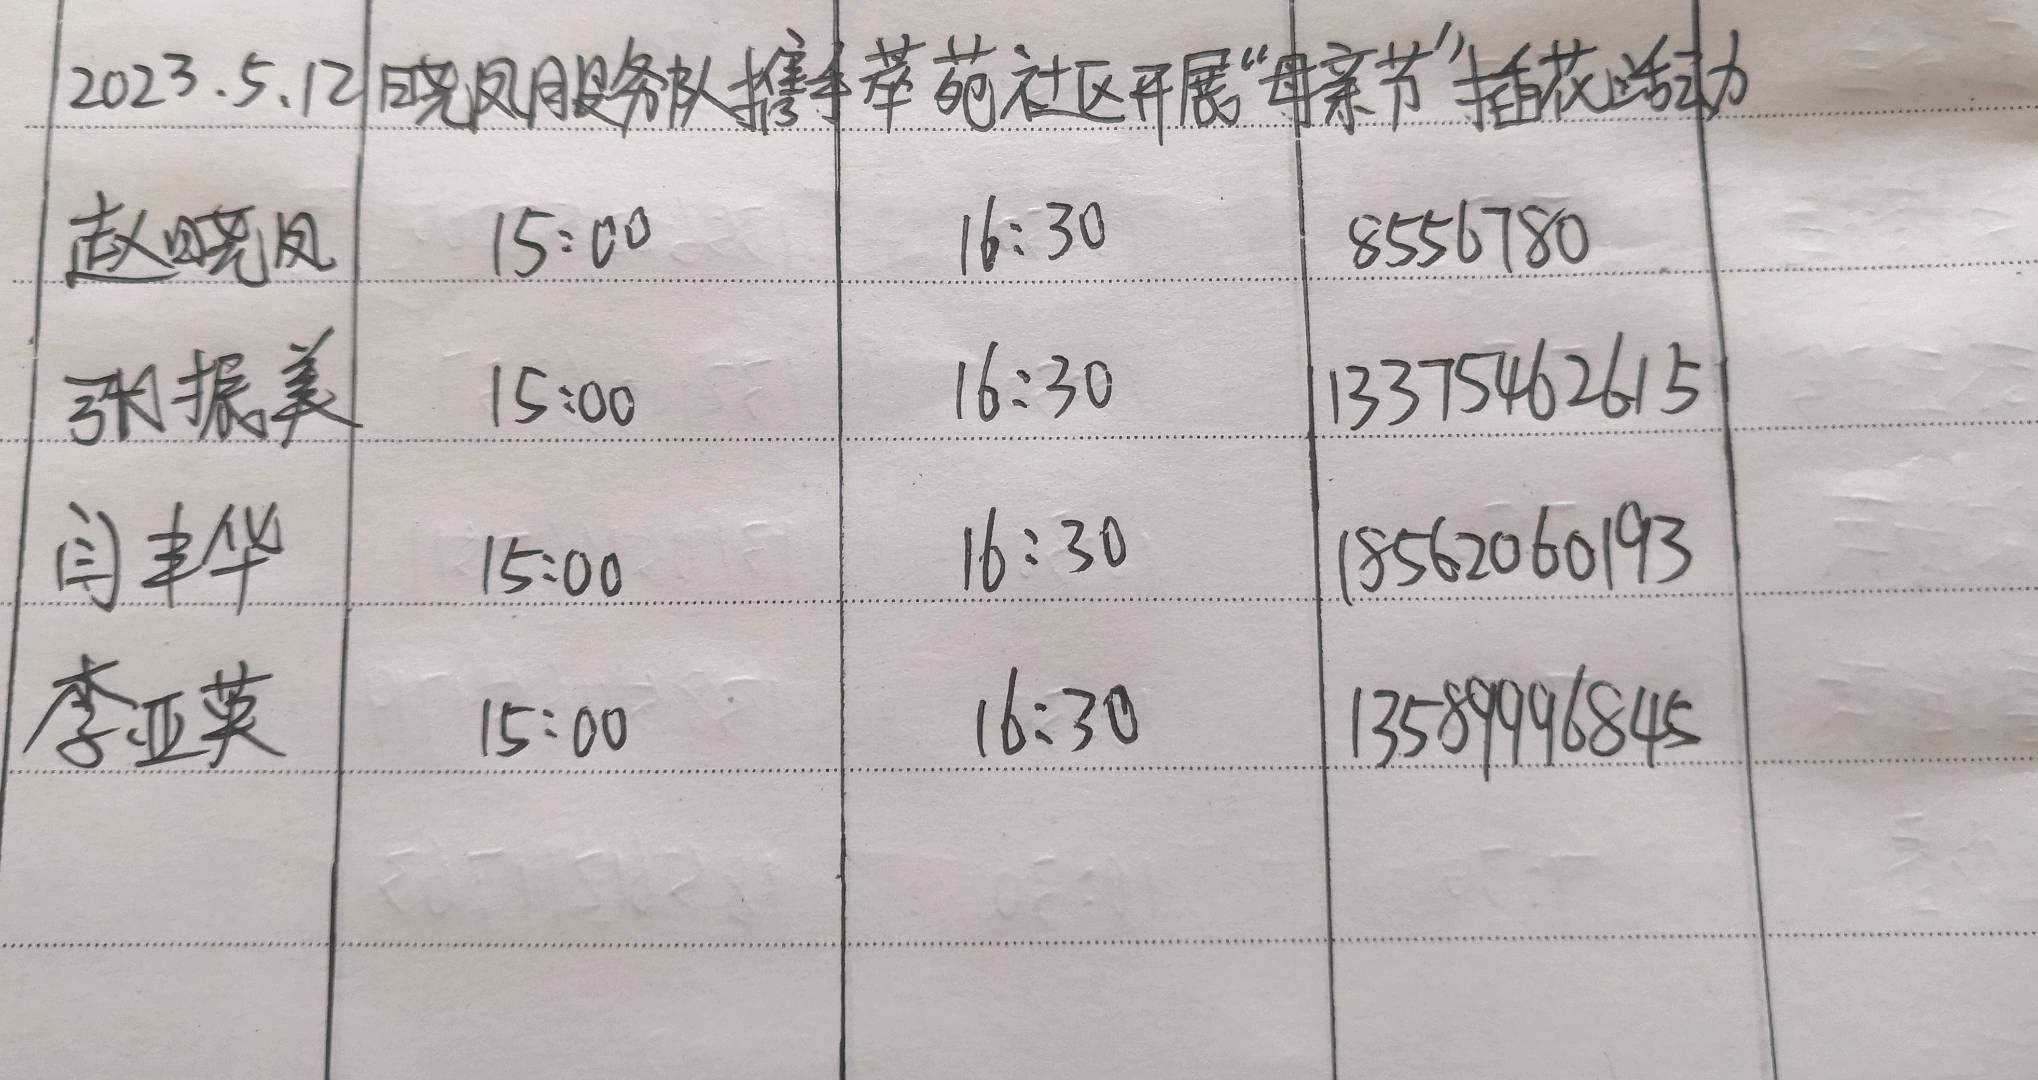 2023.5.12 晓凤服务队携手萃苑社区开展“母亲节”插花活动
赵晓凤 15:00 16:30 8556780
张振美 15:00 16:30 13375462615
闫丰华 15:00 16:30 18562060193
李亚英 15:00 16:30 13589996845